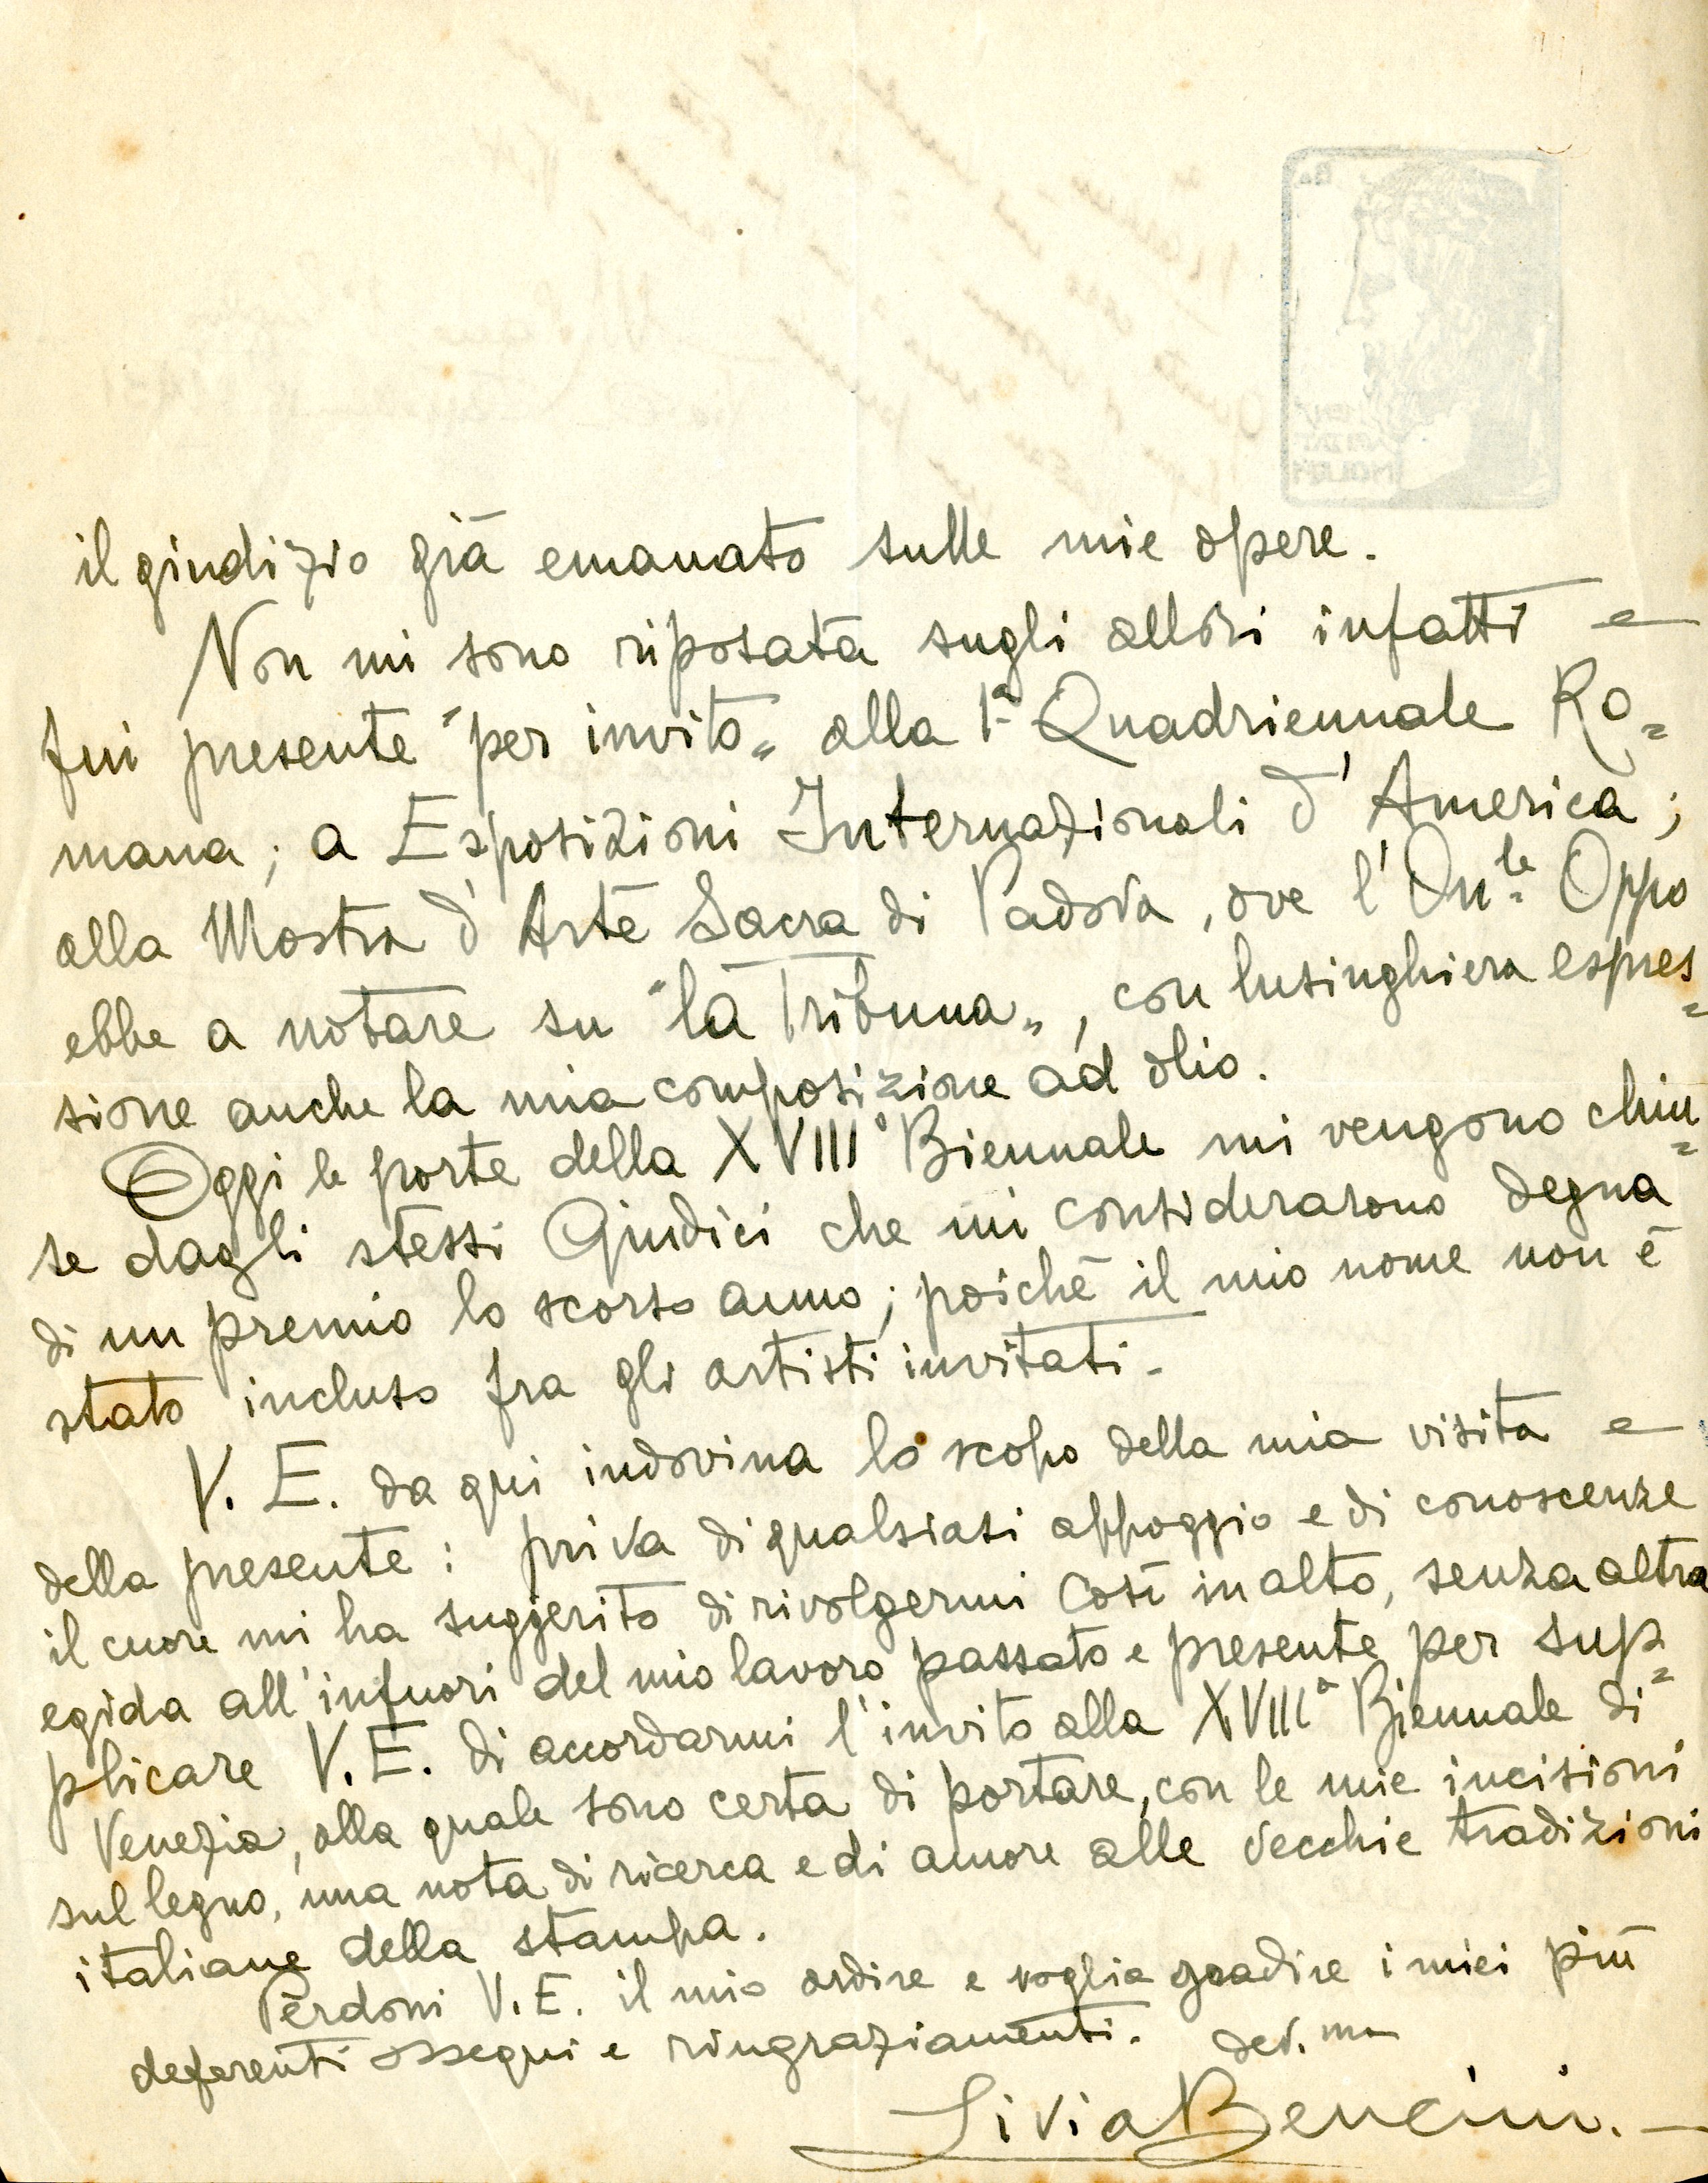 il giudizio già emanato sulle mie opere.
Non mi sono riposata sugli allori infatti e
fui presente "per invito" alla 1ª Quadriennale Ro=
mana; a Esposizioni Internazionali d'America;
alla Mostra d'Arte Sacra di Padova, ove l'On.le Oppo
ebbe a notare su "la Tribuna", con lusinghiera espres=
sione anche la mia composizione ad olio.
Oggi le porte della XVIIIª Biennale mi vengono chiu=
se dagli stessi Giudici che mi considerarono degna
di un premio lo scorso anno; poichè il mio nome non è
stato incluso fra gli artisti invitati.
V. E. da qui indovina lo scopo della mia visita e
della presente: priva di qualsiasi appoggio e di conoscenze
il cuore mi ha suggerito di rivolgermi così in alto, senza altra
egida all'infuori del mio lavoro passato e presente per sup=
plicare V. E. di accordarmi l'invito alla XVIIIª Biennale di
Venezia, alla quale sono certa di portare, con le mie incisioni
sul legno, una nota di ricerca e di amore alle vecchie tradizioni
italiane della stampa.
Perdoni V. E. il mio ardire e voglia gradire i miei più
deferenti ossequi e ringraziamenti. dev.ma
Livia Bencini.